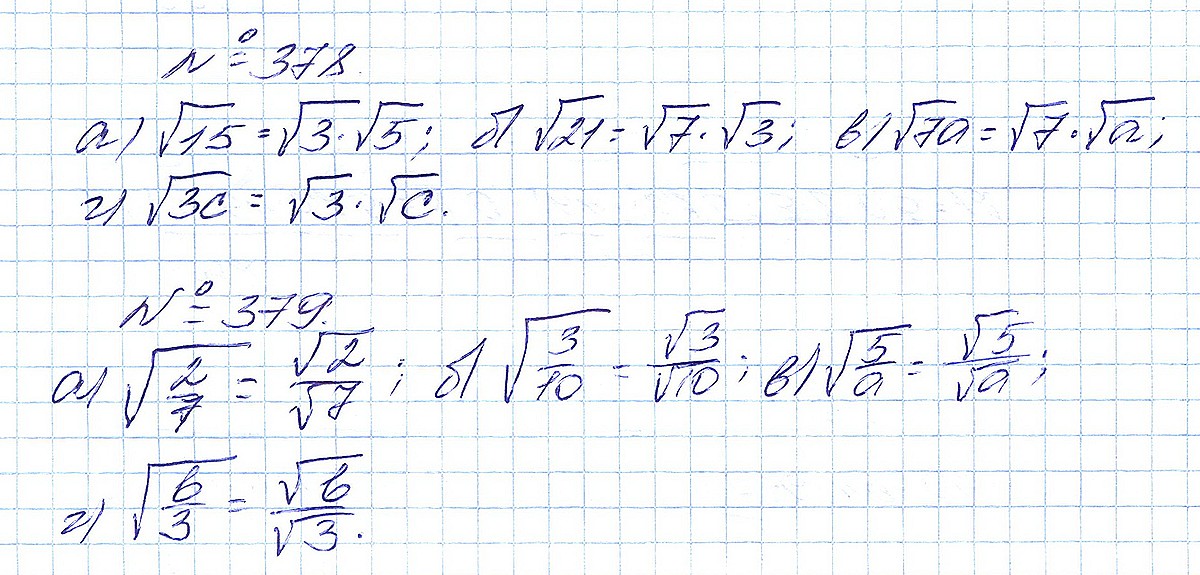 № 378.
а) √15 = √3 · √5; б) √21 = √7 · √3; в) √7a = √7 · √a;
г) √3c = √3 · √c.
№ 379.
а) √(2/7) = √2/√7; б) √(3/10) = √3/√10; в) √(5/a) = √5/√a;
г) √(b/3) = √b/√3.